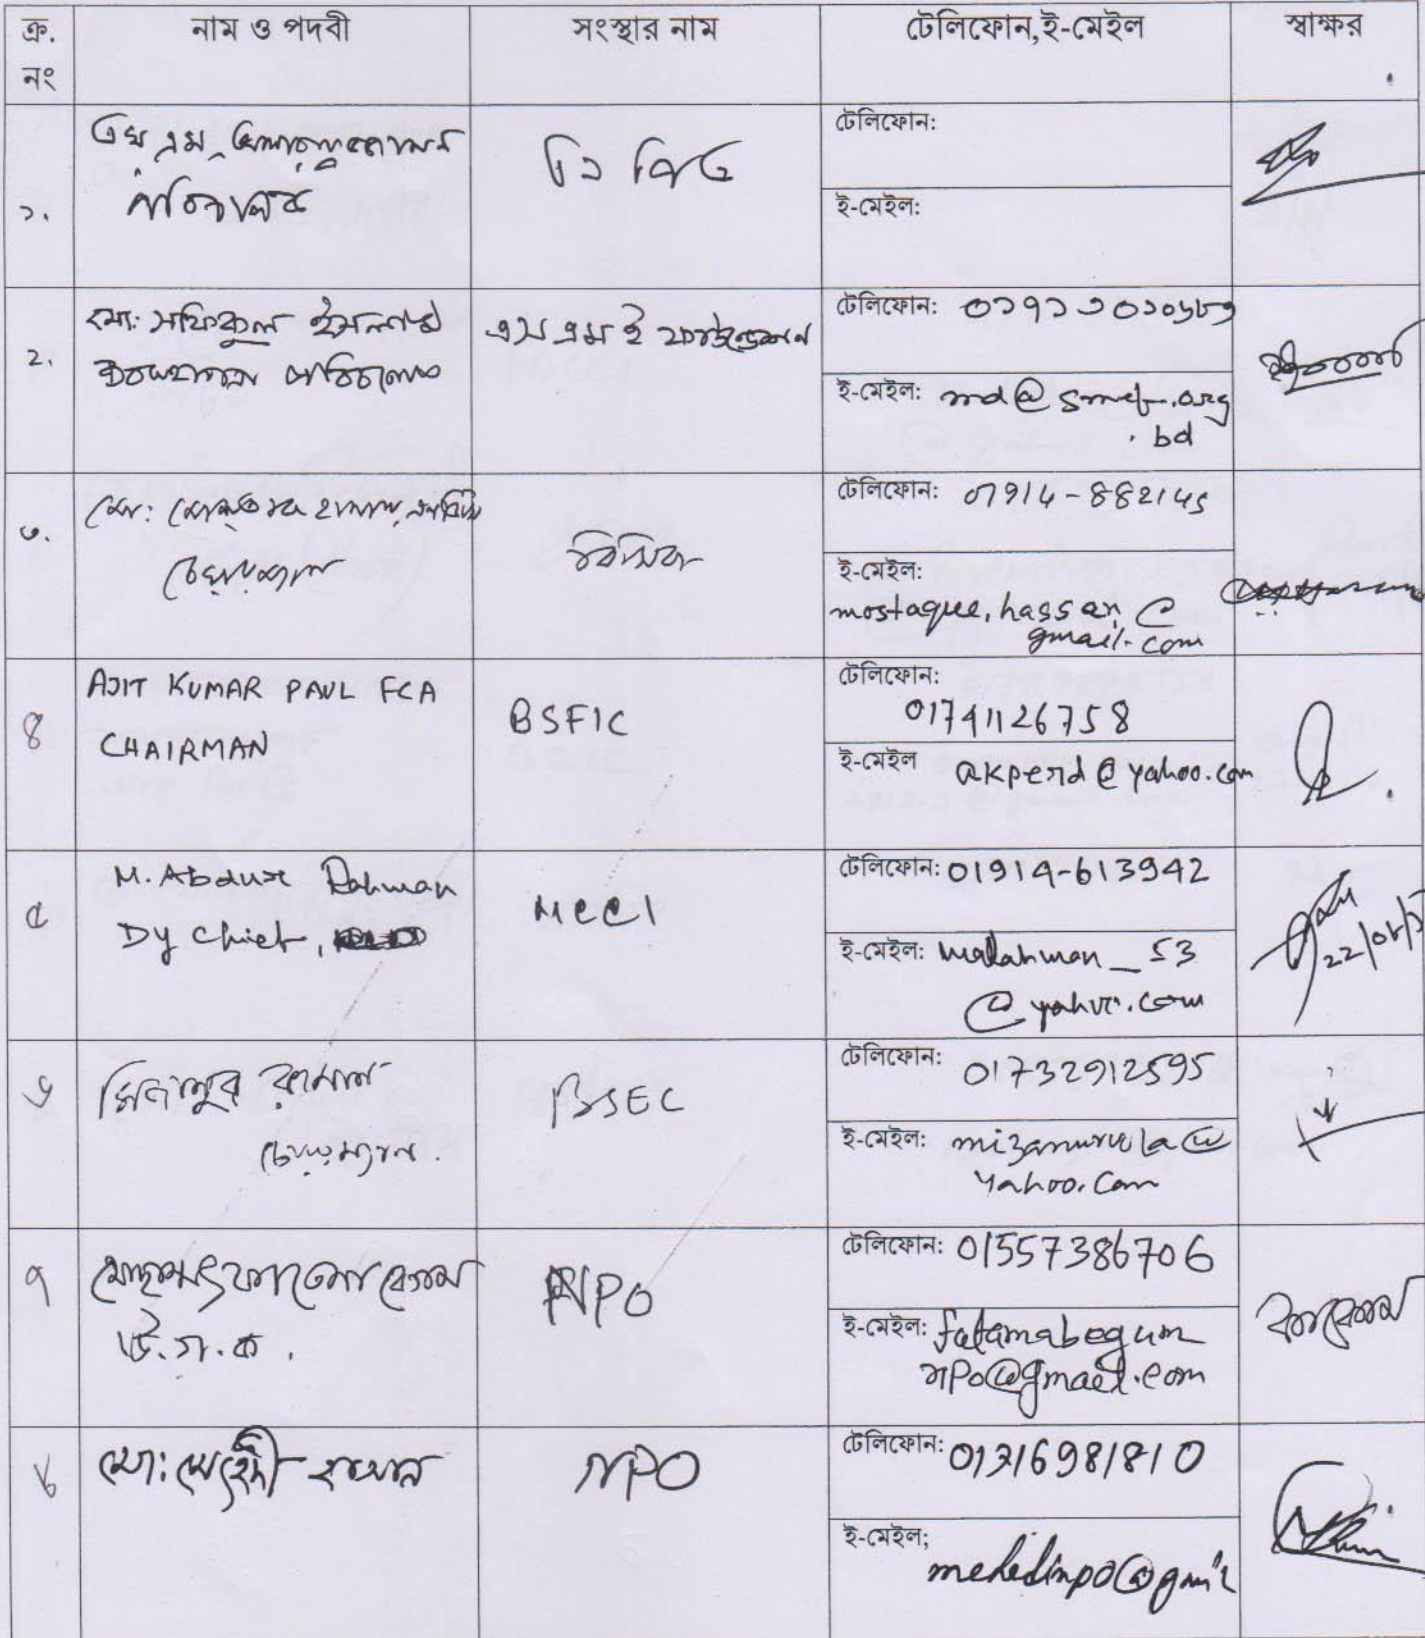 ক্র.
নং
নাম ও পদবী
সংস্থার নাম
টেলিফোন,ই-মেইল
স্বাক্ষর
১.
এম এম
পরিচালক
টেলিফোন:
ই-মেইল:
২.
মো: সফিকুল ইসলাম
ব্যবস্থাপনা পরিচালক
এস এম ই ফাউন্ডেশন
টেলিফোন:
ই-মেইল: md@smef.org
.bd
৩.
মো: মোস্তাক হাসান, এনডিসি
চেয়ারম্যান
বিসিক
টেলিফোন: 01914-882145
ই-মেইল:
mostaque.hassan@
gmail.com
৪
AJIT KUMAR PAUL FCA
CHAIRMAN
BSFIC
টেলিফোন:
01741126758
ই-মেইল @yahoo.com
৫
M. Abdur Rahman
Dy Chief,
MCCI
টেলিফোন: 01914-613942
ই-মেইল: _53
@yahoo.com
৬
মিজানুর রহমান
চেয়ারম্যান.
BSEC
টেলিফোন:
01732912595
ই-মেইল:
yahoo.com
৭
মোছাম্মৎ ফাতেমা বেগম
উ.গ.ক.
NPO
টেলিফোন: 01557386706
ই-মেইল: fatamabegum
npo@gmail.com
৮
মো: মেহেদী হাসান
NPO
টেলিফোন: 01716981810
ই-মেইল;